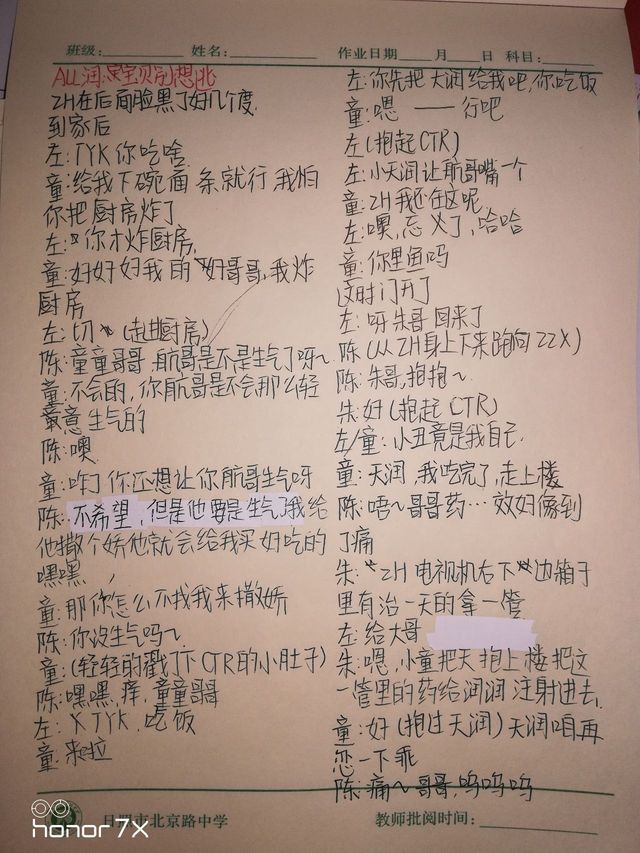 班级: 姓名: 作业日期 月 日 科目:
ALL润:黑宝贝别想逃
ZH在后面脸黑了好几个度
到家后
左:TYK你吃啥
童:给我下碗面条就行我怕
你把厨房炸了
左:你才炸厨房
童:好好好我的好哥哥,我炸
厨房
左:切(走进厨房)
陈:童童哥哥,航哥是不是生气了呀~
童:不会的,你航哥是不会那么轻
意生气的
陈:噢
童:咋了你还想让你航哥生气呀
陈:不希望,但是他要是生气了我给
他撒个娇他就会给我买好吃的
嘿嘿
童:那你怎么不找我来撒娇
陈:你没生气吗~
童:(轻轻的戳了下CTR的小肚子)
陈:嘿嘿,痒,童童哥哥
左:TYK,吃饭
童:来啦
左:你先把大润给我吧,你吃饭
童:嗯——行吧
左(抱起CTR)
左:小天润让航哥嘴一个
童:ZH我还在这呢
左:噢,忘了,哈哈
童:你里鱼吗
这时门开了
左:呀朱哥回来了
陈(从ZH身上下来跑向ZZX)
陈:朱哥,抱抱~
朱:好(抱起CTR)
左/童:小丑竟是我自己
童:天润,我吃完了,走上楼
陈:唔~哥哥药…效好像到
了痛
朱:ZH电视机右下边箱子
里有治一天的拿一管
左:给大哥
朱:嗯,小童把天抱上楼把这
一管里的药给润润注射进去
童:好(抱过天润)天润咱再
忍一下乖
陈:痛~哥哥,呜呜呜
日照市北京路中学 教师批阅时间:
honor 7X